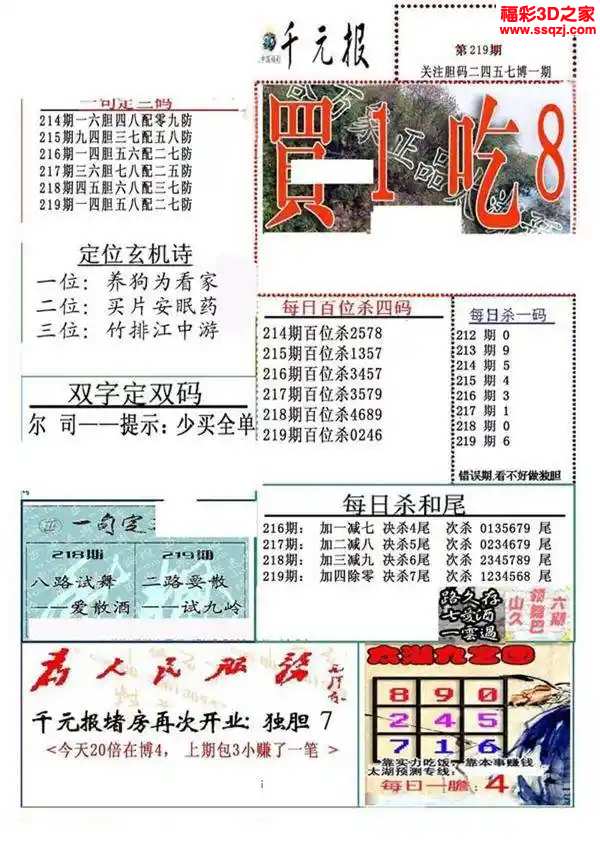 福彩3D之家
www.ssqzj.com
千元报
第219期
关注胆码二四五七博一期
一句定三码
214期一六胆四八配零九防
215期九四胆三七配五八防
216期一四胆五六配二七防
217期三六胆七八配二五防
218期四五胆六八配三七防
219期一四胆五八配二七防
買1吃8
定位玄机诗
一位：养狗为看家
二位：买片安眠药
三位：竹排江中游
每日百位杀四码
214期百位杀2578
215期百位杀1357
216期百位杀3457
217期百位杀3579
218期百位杀4689
219期百位杀0246
每日杀一码
212 期 0
213 期 9
214 期 5
215 期 4
216 期 3
217 期 1
218 期 0
219 期 6
错误期,看不好做独胆
双字定双码
尔 司——提示：少买全单
一句定
218期
八路试舞
——爱散酒
219期
二路要散
——试九岭
每日杀和尾
216期： 加一减七 决杀4尾 次杀 0135679 尾
217期： 加二减八 决杀5尾 次杀 0234679 尾
218期： 加三减九 决杀6尾 次杀 2345789 尾
219期： 加四除零 决杀7尾 次杀 1234568 尾
为人民服务
千元报堵房再次开业: 独胆 7
<今天20倍在博4， 上期包3小赚了一笔 >
8 9 0
2 4 5
7 1 6
靠实力吃饭，靠本事赚钱
太湖预测专线:
每日一胆: 4